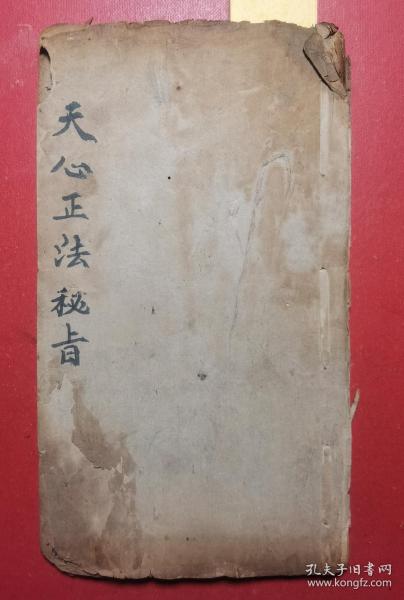 天心正法秘旨
孔夫子旧书网
www.kongfz.com